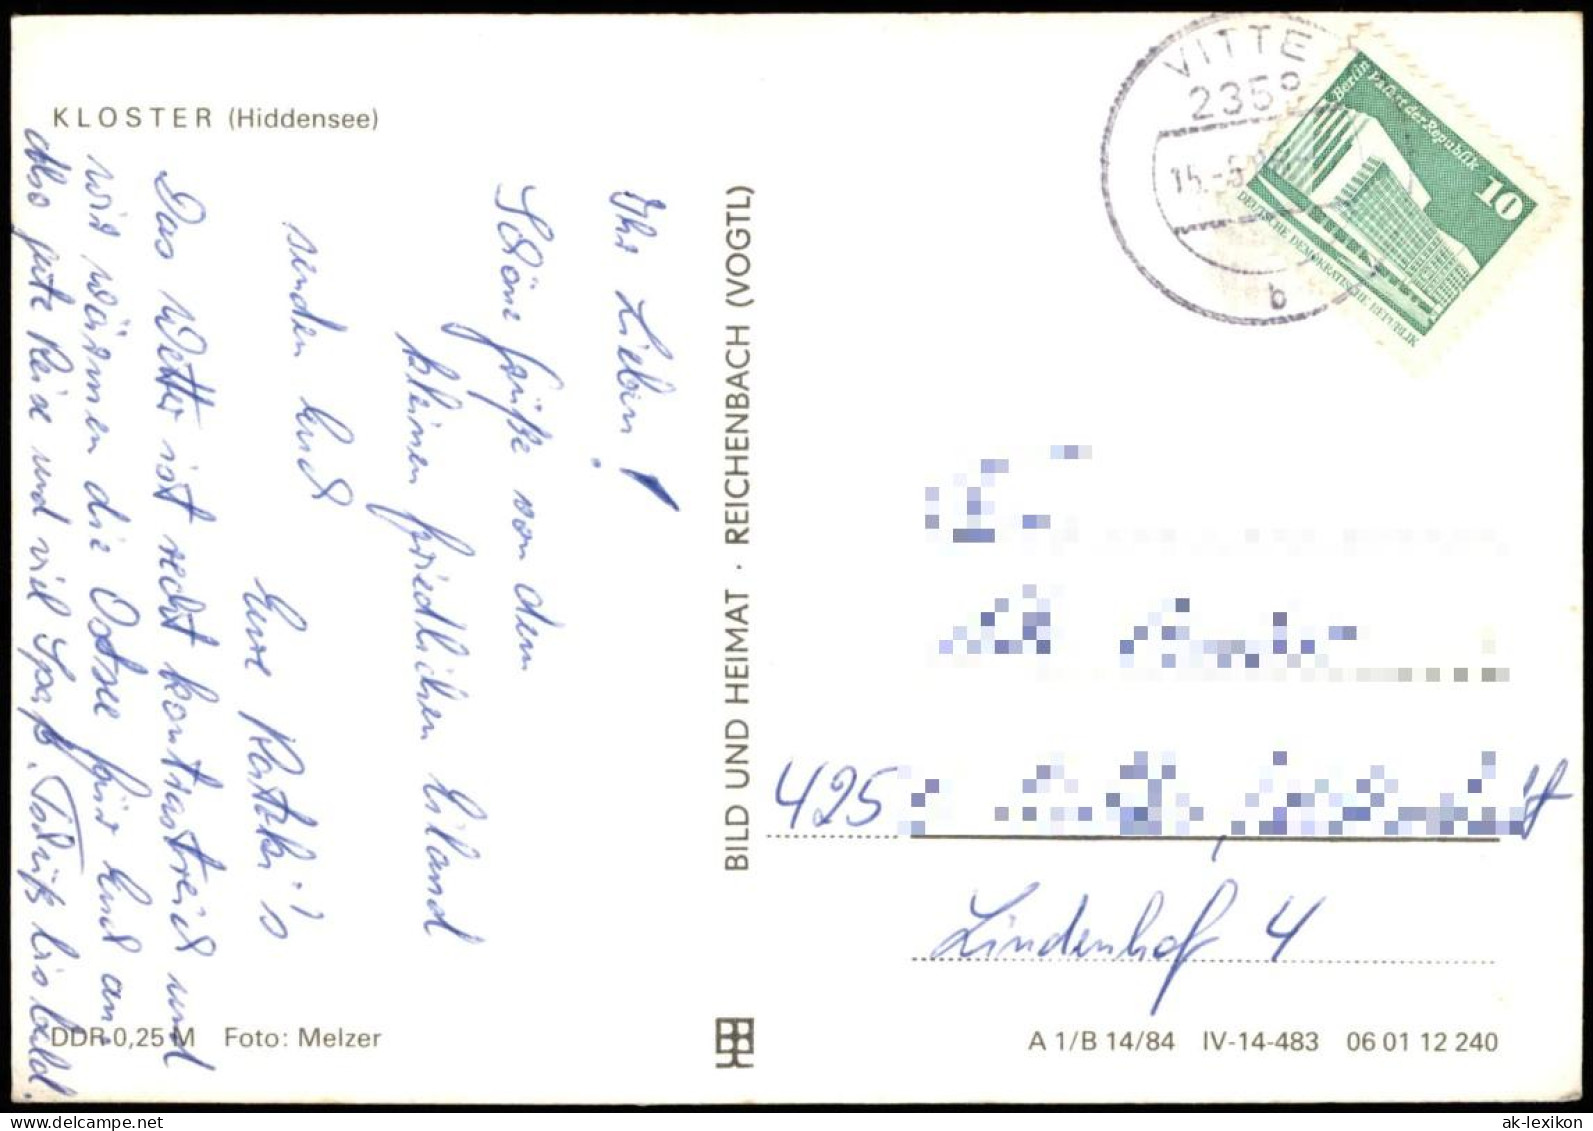 KLOSTER (Hiddensee)
Ihr Lieben!
Schöne Grüße von dem
kleinen friedlichen Eiland
senden Euch
Eure
Das Wetter ist recht kontrastreich und
wir wärmen die Ostsee für Euch an
also gute Reise und viel Spaß. Tschüß bis bald.
DDR 0,25 M Foto: Melzer
BILD UND HEIMAT · REICHENBACH (VOGTL)
VITTE
235
15.-5
b
Berlin Palast der Republik
10
DEUTSCHE DEMOKRATISCHE REPUBLIK
425
Lindenhof 4
A 1/B 14/84 IV-14-483 06 01 12 240
ak-lexikon